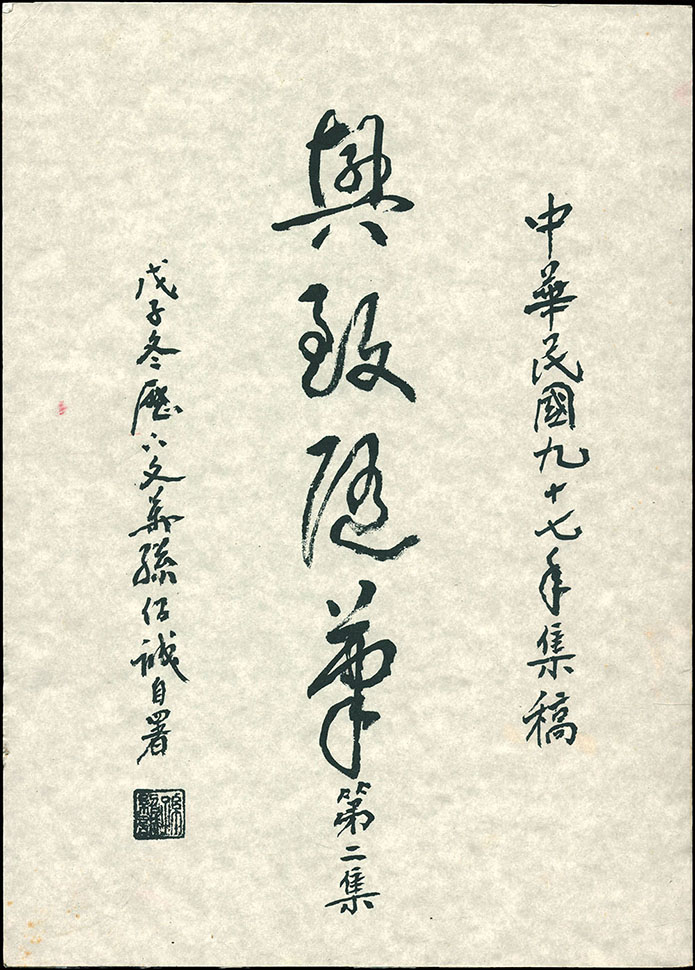 中華民國九十七年集稿
興致隨筆
第二集
戊子冬歷下文孫誠自署